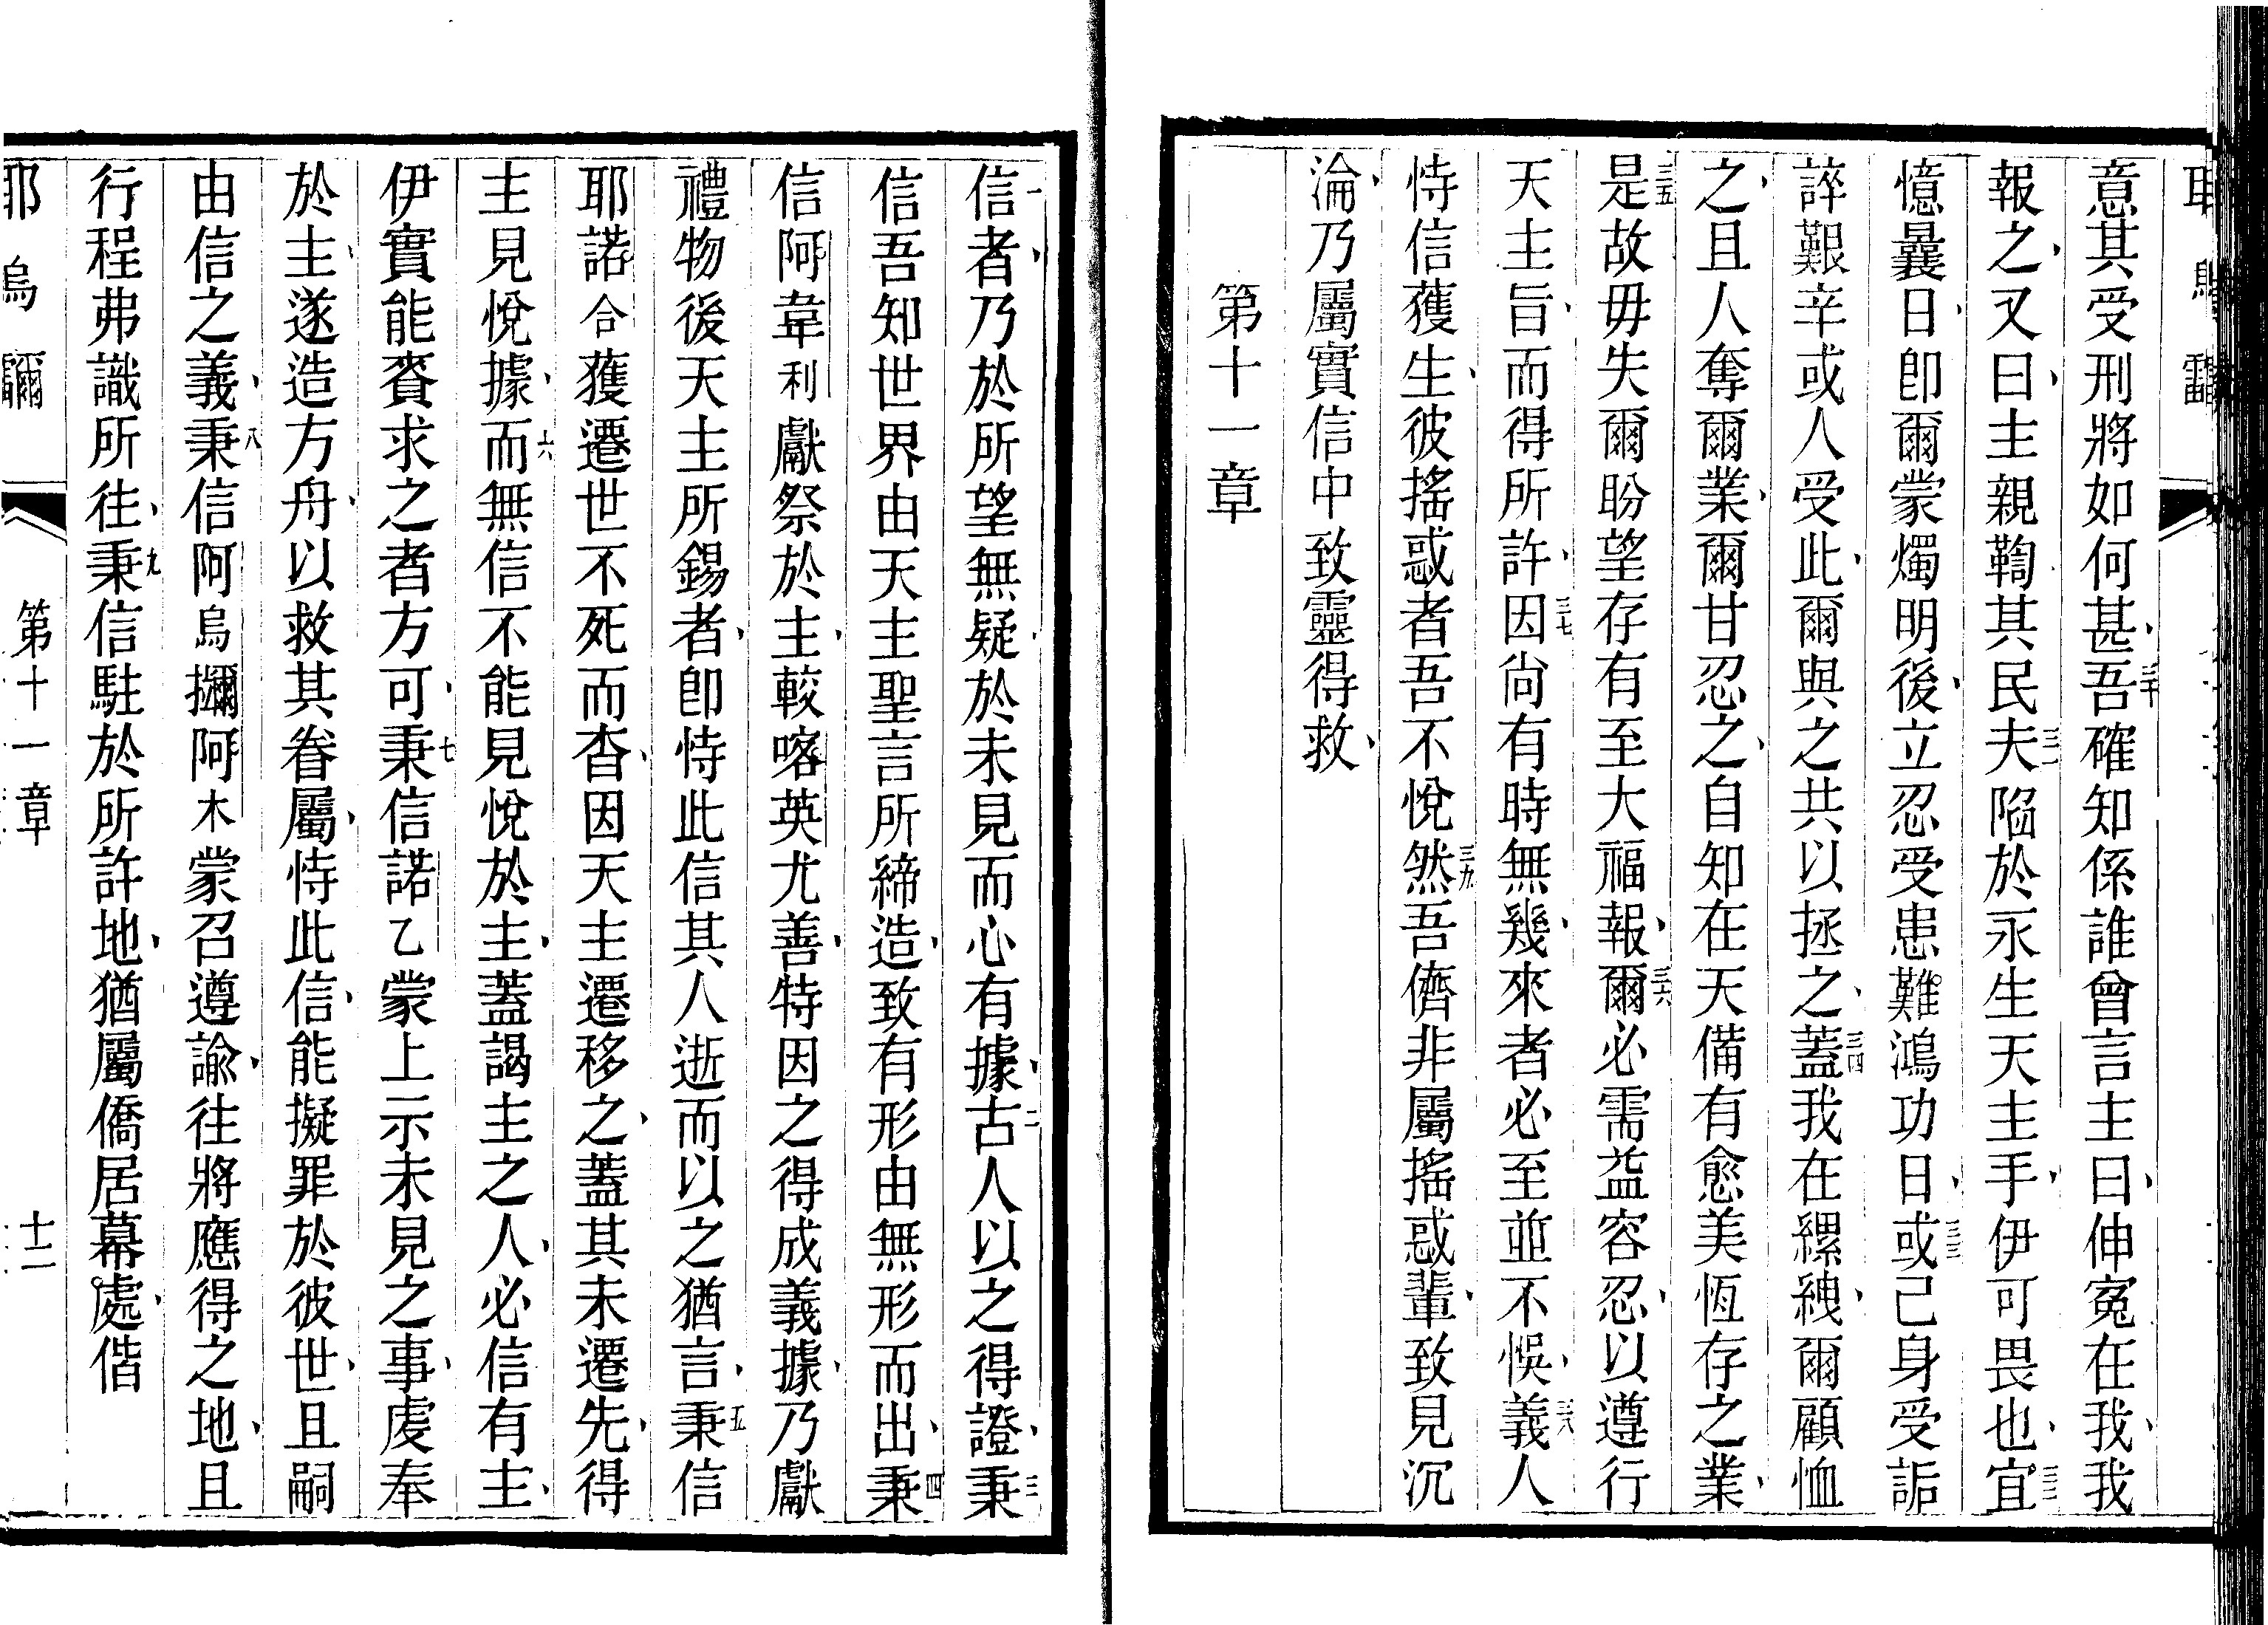 意其受刑將如何甚、三十吾確知係誰曾言主曰、伸寃在我、我
報之、又曰、主親鞫其民三一夫陷於永生天主手、伊可畏也、三二宜
憶曩日、卽爾蒙燭明後、立忍受患難鴻功日、三三或己身受詬
誶艱辛或人受此、爾與之共以拯之、三四蓋我在縲絏、爾顧恤
之、且人奪爾業、爾甘忍之、自知在天備有愈美恆存之業、
三五是故毋失爾盼望存有至大福報、三六爾必需益容忍、以遵行
天主旨、而得所許、三七因尙有時無幾、來者必至並不悞、三八義人
恃信獲生、彼搖惑者吾不悅三九然吾儕非屬搖惑輩、致見沉
淪、乃屬實信中致靈得救、
第十一章
一信者、乃於所望無疑、於未見而心有據、二古人以之得證、三秉
信吾知世界由天主聖言所締造、致有形由無形而出、四秉
信阿韋利獻祭於主、較喀英尤善、特因之得成義據、乃獻
禮物後天主所錫者、卽恃此信其人逝而以之猶言、五秉信
耶諾合獲遷世不死而杳、因天主遷移之、蓋其未遷先、得
主見悅據、六而無信不能見悅於主、蓋謁主之人、必信有主、
伊實能賚求之者方可、七秉信諾乙蒙上示未見之事、虔奉
於主、遂造方舟、以救其眷屬、恃此信、能擬罪於彼世、且嗣
由信之義、八秉信阿烏攡阿木蒙召遵諭、往將應得之地、且
行程弗識所往、九秉信駐於所許地、猶屬僑居幕處、偕
耶烏爾
第十一章
十二